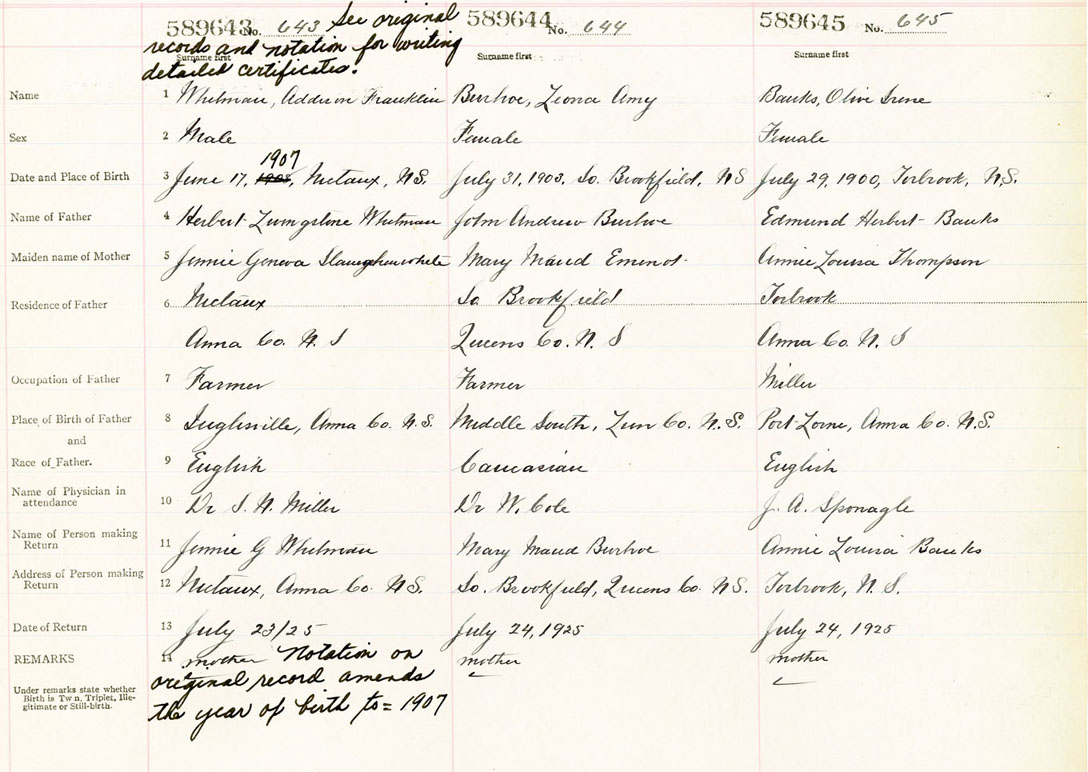 589643 No. 643 See original
records and notation for writing
detailed certificates.
Surname first
589644 No. 644
Surname first
589645 No. 645
Surname first
Name 1 Whitman, Addison Franklin Burhoe, Leona Amy Banks, Olive Irene
Sex 2 Male Female Female
1907
Date and Place of Birth 3 June 17, Nictaux, N.S. July 31, 1903, So. Brookfield, N S July 29, 1900, Torbrook, N.S.
Name of Father 4 Herbert Livingstone Whitman John Andrew Burhoe Edmund Herbert Banks
Maiden name of Mother 5 Jennie Geneva Slaughenwhite Mary Maud Emenot Annie Louisa Thompson
Residence of Father 6 Nictaux So Brookfield Torbrook
Anna Co. N. S Queens Co. N. S Anna Co. N. S
Occupation of Father 7 Farmer Farmer Miller
Place of Birth of Father 8 Inglisville, Anna Co. N.S. Middle South, Lun Co. N.S. Port Lorne, Anna Co. N.S.
and
Race of Father. 9 English Caucasian English
Name of Physician in
attendance 10 Dr S. N. Miller Dr W. Cole J. A. Sponagle
Name of Person making
Return 11 Jennie G Whitman Mary Maud Burhoe Annie Louisa Banks
Address of Person making
Return 12 Nictaux, Anna Co. N.S. So. Brookfield, Queens Co. N.S. Torbrook, N. S.
Date of Return 13 July 23/25 July 24, 1925 July 24, 1925
REMARKS 14 mother Notation on mother mother
original record amends
the year of birth to = 1907
Under remarks state whether
Birth is Twn, Triplet, Ille-
gitimate or Still-birth.